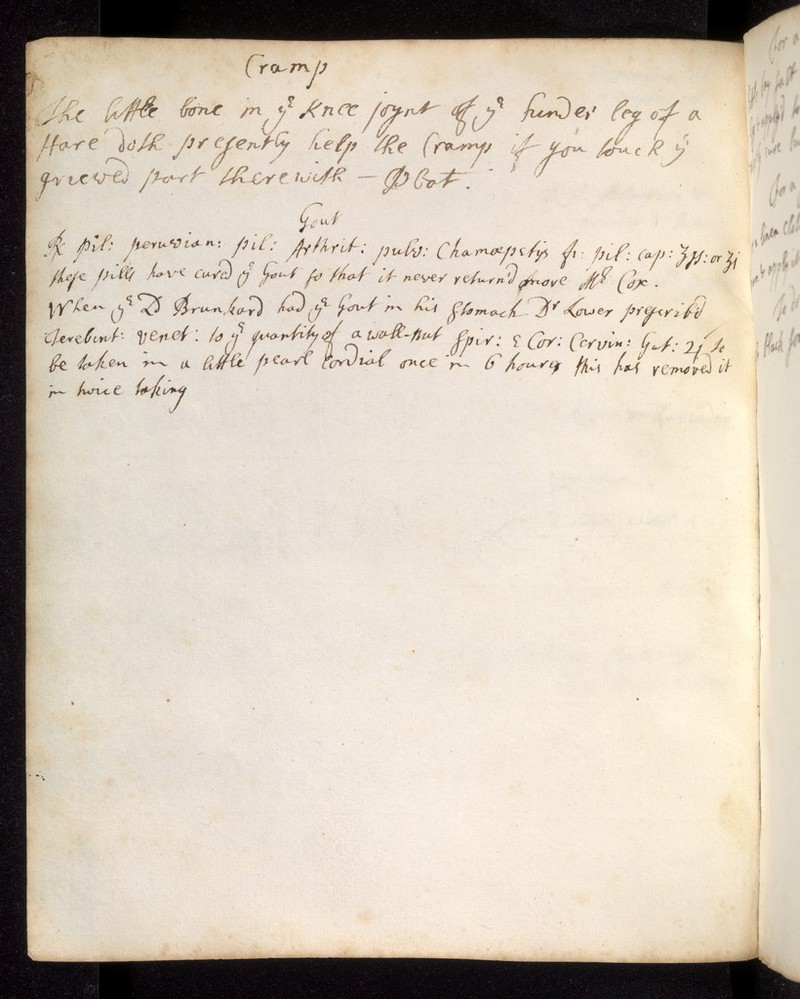 Cramp
The little bone in yͤ Knee joynt of yͤ hinder leg of a
Hare doth presently help the Cramp if you touch yͤ
grieved part therewith — Pbat.
Gout
℞ Pil: peruvian: pil: Arthrit: pulv: Chamæpitys fi: pil: cap: ʒſs: or ʒi
these pills have cured yͤ Gout so that it never return'd more Mͬ Cox.
When yͤ D Brunkard had yͤ Gout in his Stomach Dͬ Lower prescrib'd
Terebint: venet: to yͤ quantity of a wall-nut Spir: C: Cervin: Gut: 25 to
be taken in a little pearl Cordial once in 6 hours this has removed it
in twice taking